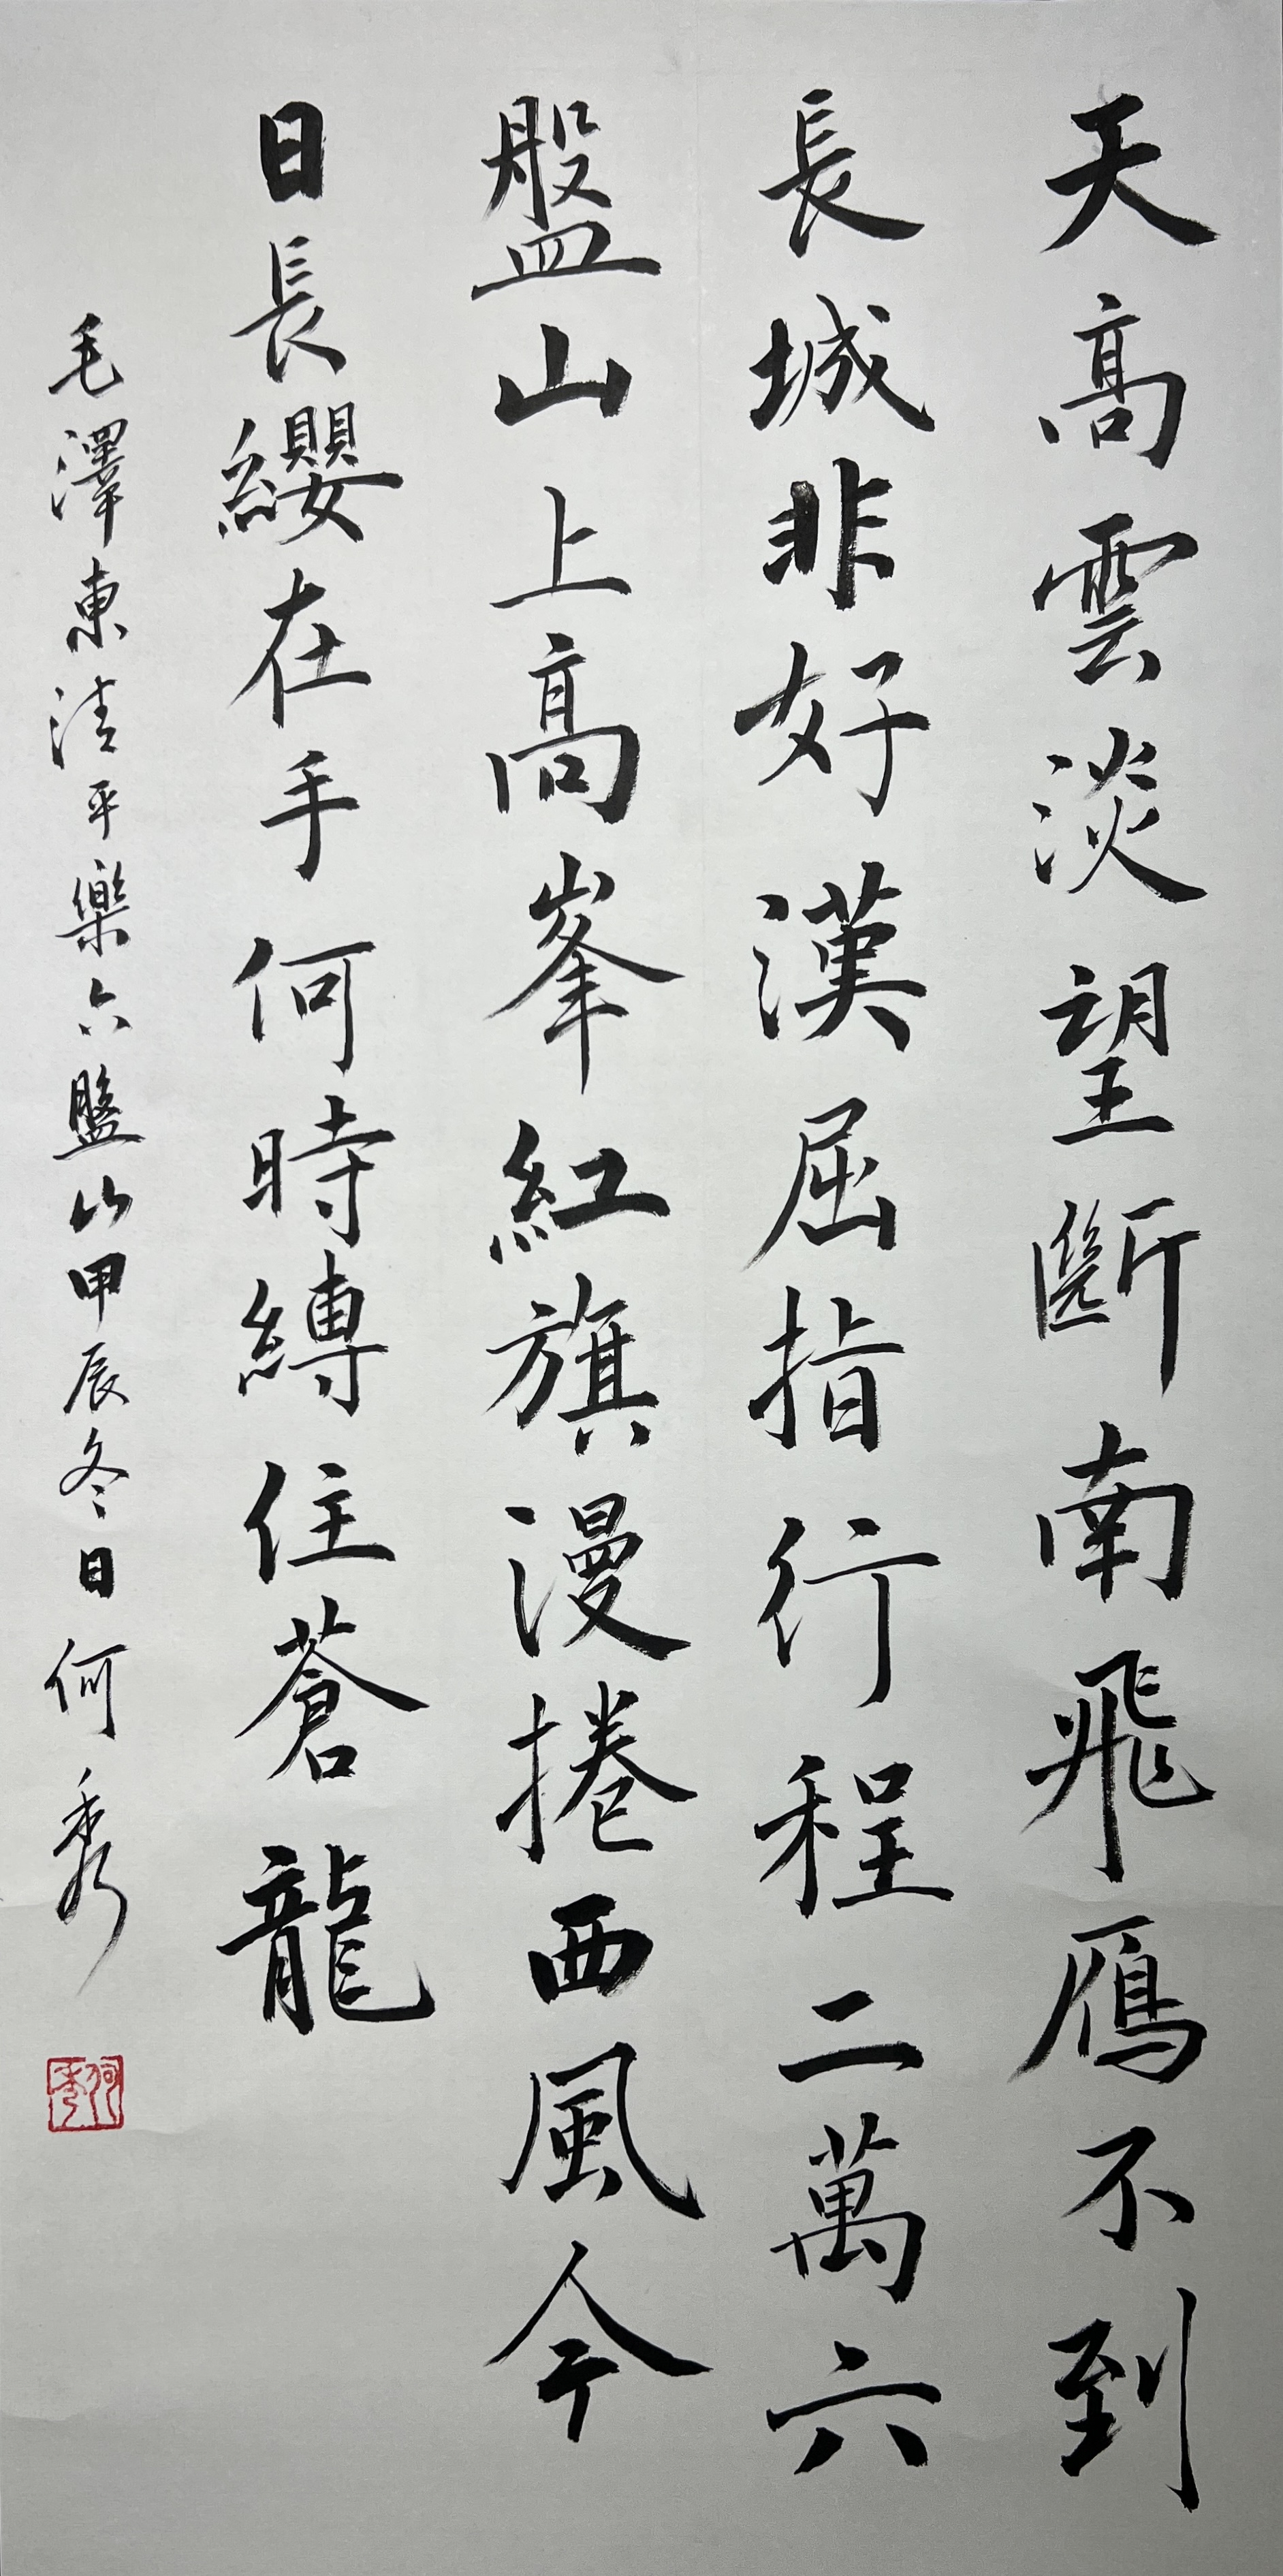 天高雲淡望斷南飛鴈不到
長城非好漢屈指行程二萬六
盤山上高峯紅旗漫捲西風今
日長纓在手何時縛住蒼龍
毛澤東清平樂六盤山甲辰冬日何秀
何秀